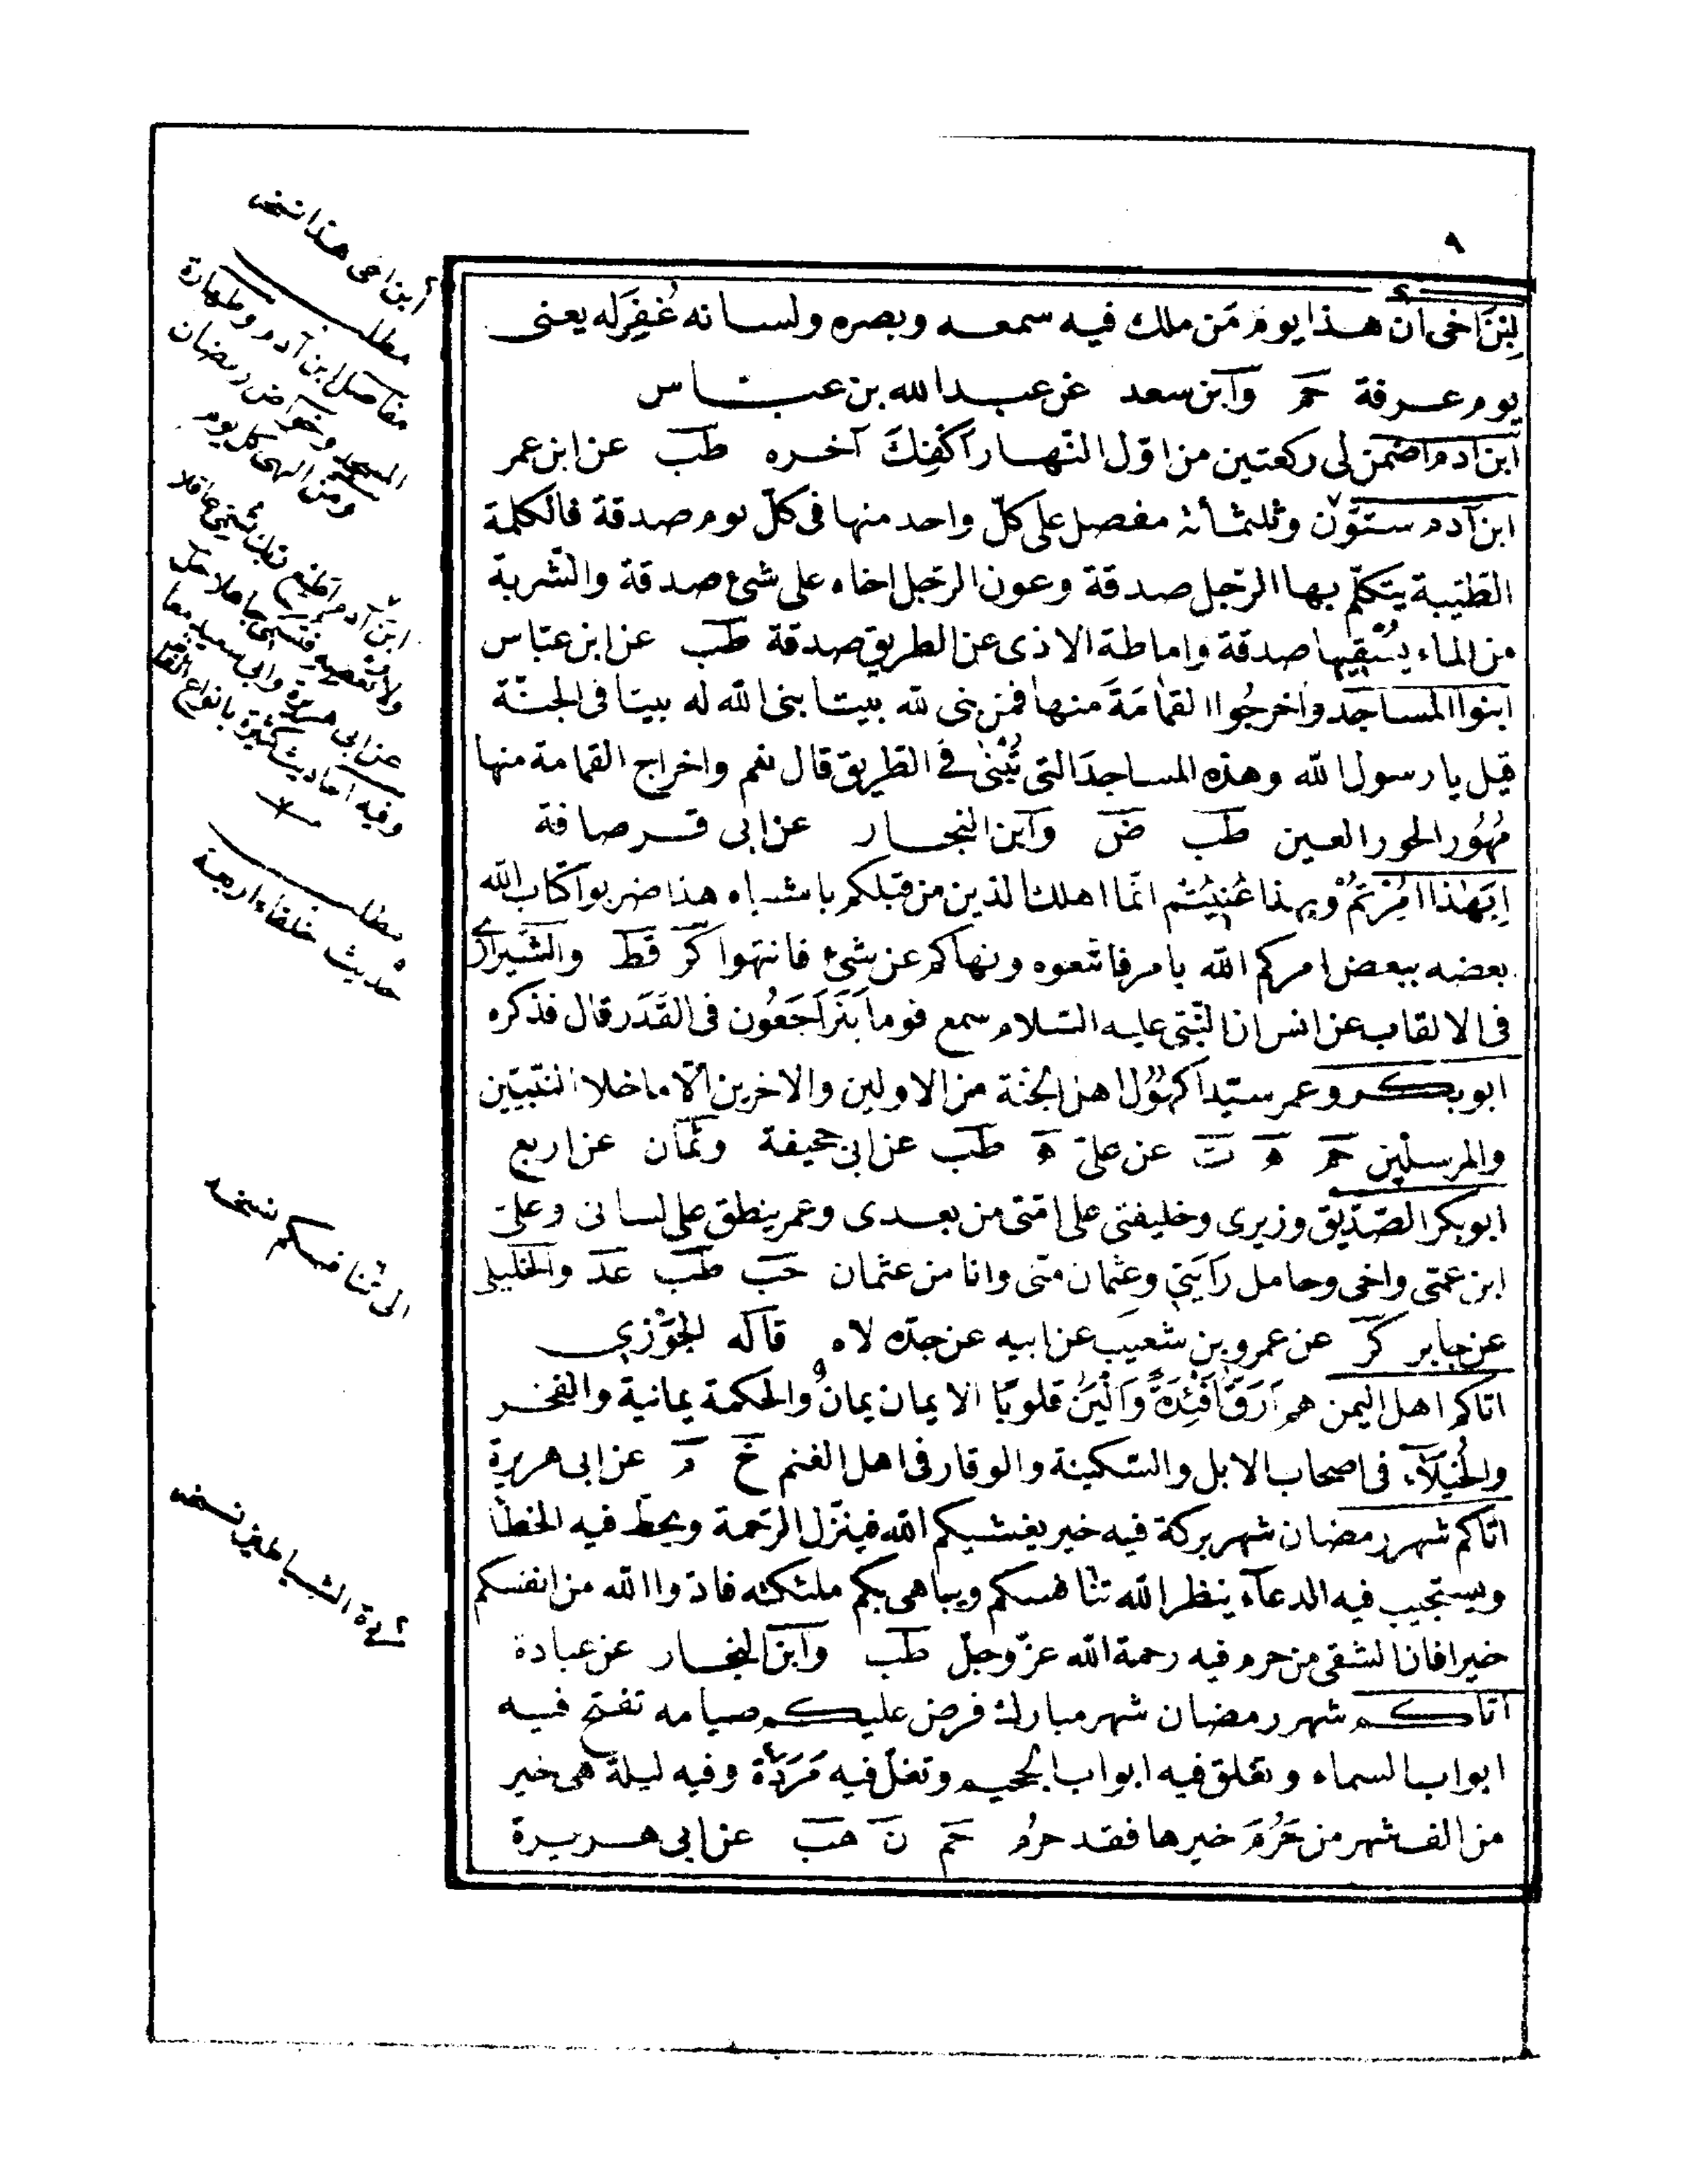 ٩
لبن اخى ان هذا يوم مَن ملك فيه سمعه وبصره ولسانه غُفِرَ له يعنى
يوم عرفة حم وابن سعد عن عبد الله بن عباس
ابن ادم اضمن لى ركعتين من اوّل النّهار اَكْفِكَ آخره طب عن ابن عمر
ابن آدم ستّون وثلثمائة مفصل على كلّ واحد منها فى كلّ يوم صدقة فالكلمة
الطّيّبة يتكلّم بها الرّجل صدقة وعون الرّجل اخاه على شئ صدقة والشّربة
من الماء يُسْقِيها صدقة واماطة الاذى عن الطريق صدقة طب عن ابن عبّاس
ابنوا المساجد واخرجُوا القمامَةَ منها فمن بنى لله بيتا بنى الله له بيتا فى الجنّة
قيل يا رسول الله وهذه المساجدَ التى تُبْنى فى الطّريق قال نعم واخراج القمامة منها
مُهُور الحور العين طب ض وابن النجار عن ابى قرصافة
اِبِهٰذا اُمِرْتمُ وبهذا عُنِيْتُم انّما اهلك الذين من قبلكم باشباه هذا ضربوا كتاب الله
بعضه ببعض امركم الله بامر فاتبعوه ونهاكم عن شئ فانتهوا كر قط والشّيرازى
فى الالقاب عن انس ان النّبىّ عليه السّلام سمع قوما يَتَراَجَعُون فى القَدَر قال فذكره
ابو بكر وعمر سيّدا كهول اهل الجنّة من الاولين والاخرين الّا ما خلا النّبيّين
والمرسلين حم ه ت عن علىّ ه طب عن ابى جحيفة وثمان عن اربع
ابو بكر الصّدّيق وزيرى وخليفتى على امّتى من بعدى وعمر ينطق على لسانى وعلىّ
ابن عمّى واخى وحامل رَايَتِي وعثمان منّى وانا من عثمان حب طب عد والخليلى
عن جابر كر عن عمرو بن شعيب عن ابيه عن جدّه لاه قاله الجَوْزِي
اتاكم اهل اليمن هم اَرَقُّ اَفْئِدَةً وَاَلْيَنُ قلوبًا الايمان يمانٌ والحكمة يمانية والفخر
والخُيَلَآء فى اصحاب الابل والسّكينة والوقار فى اهل الغنم خ م عن ابى هريرة
اتاكم شهر رمضان شهر بركة فيه خير يغشيكم الله فينزّل الرّحمة ويحطّ فيه الخطأ
ويستجيب فيه الدعآء ينظر الله تنافسكم ويباهى بكم ملئكته فادّوا الله من انفسكم
خيرا فان الشقى من حرم فيه رحمة الله عزّ وجلّ طب وابن النجار عن عبادة
اتاكم شهر رمضان شهر مبارك فرض عليكم صيامه تفتح فيه
ابواب السماء وتغلق فيه ابواب الجحيم وتغلّ فيه مَرَدَة وفيه ليلة هى خير
من الف شهر من حَرُمَ خيرها فقد حرُم حم ن هب عن ابى هريرة
أبن اخى هذا نسخه
مطلب
مفاصل ابن آدم وطهارة
المسجد وخواص رمضان
ابن آدم اطع ربك تسمى عاقلا
ولا تعصه فتسمى جاهلا حل
عن ابى هريرة وابى سعيد معا
وفيه احاديث كثيرة بانواع
مطلب
حديث خلفاء اربعة
الى تنافسكم نسخه
مردة الشياطين نسخه